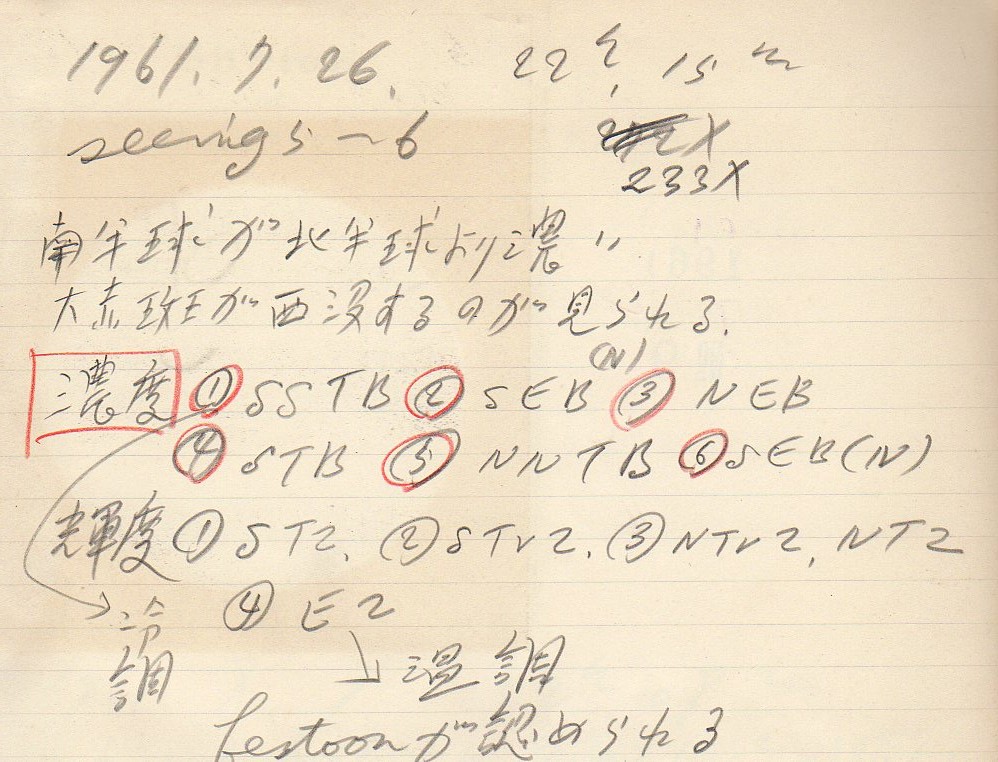 1961. 7. 26. 22h 15m
seeing 5~6
233X
南半球が北半球より濃い
大赤斑が西没するのが見られる.
(N)
濃度 ① SSTB ② SEB ③ NEB
④ STB ⑤ NNTB ⑥ SEB(N)
輝度 ① STZ. ② STrZ. ③ NTrZ, NTZ
④ EZ
冷調
温調
festoonが認められる